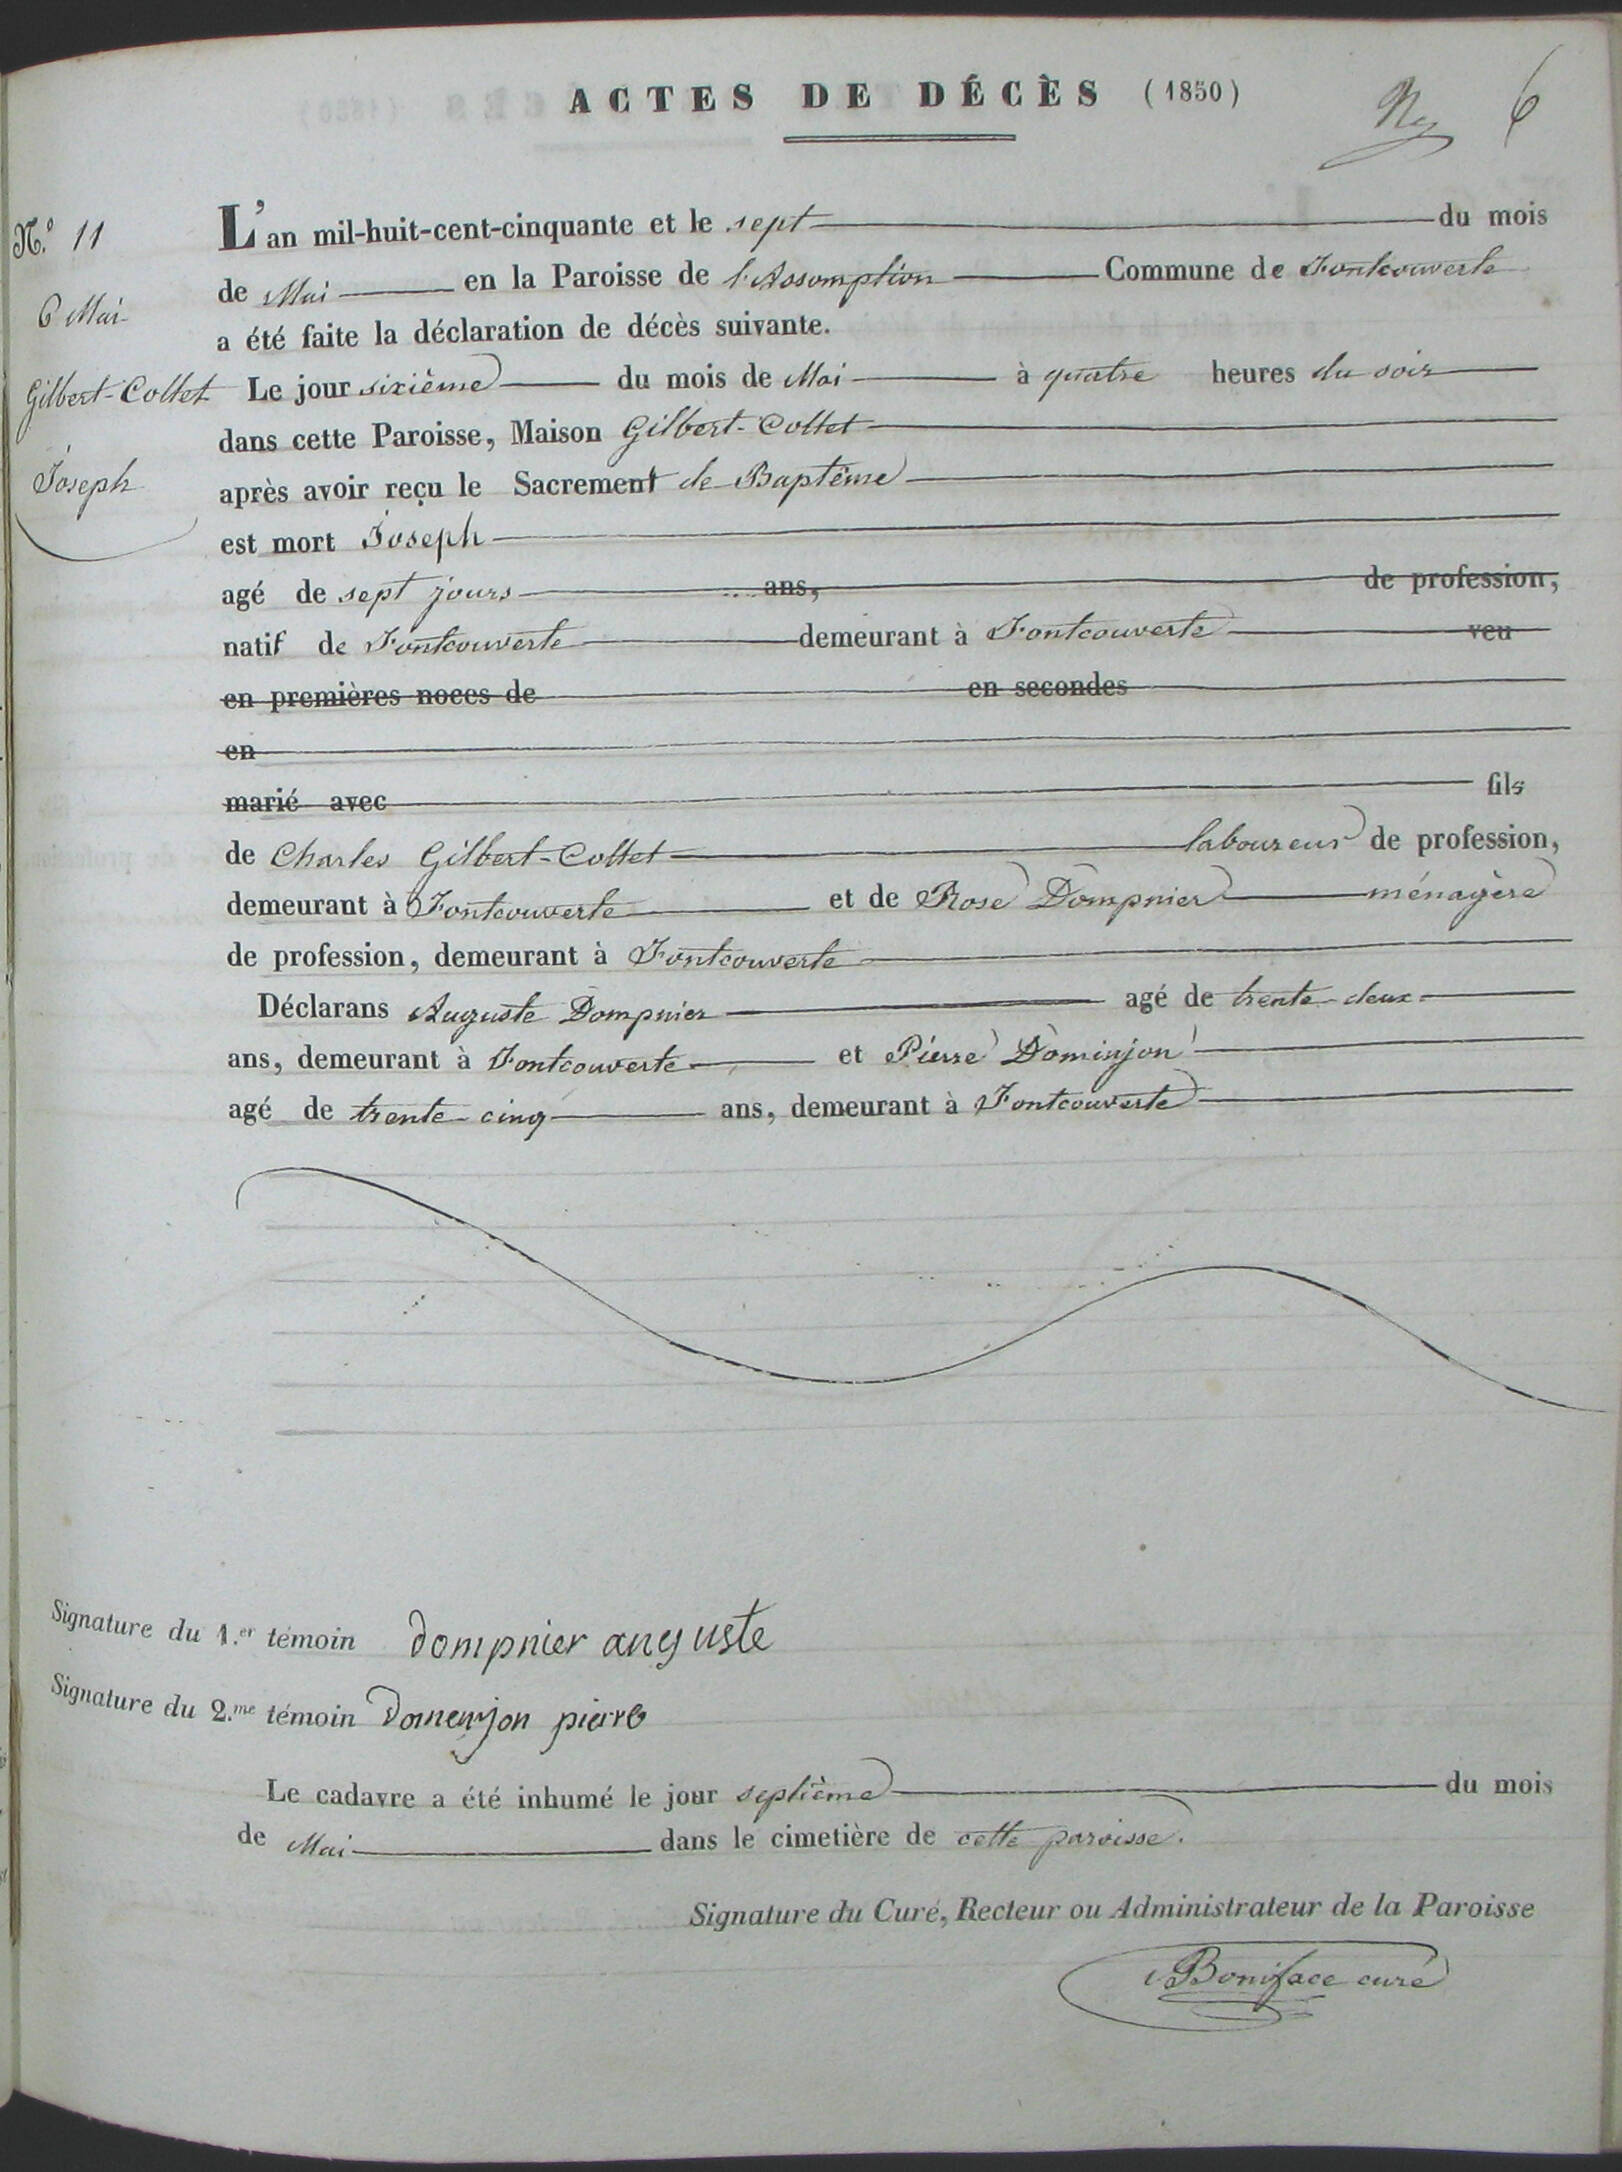 ACTES DE DÉCÈS (1850)
6
N.º 11
L'an mil-huit-cent-cinquante et le sept du mois
de Mai en la Paroisse de l'Assomption Commune de Fontcouverte
6 Mai
a été faite la déclaration de décès suivante.
Gilbert-Collet
Le jour sixième du mois de Mai à quatre heures du soir
dans cette Paroisse, Maison Gilbert-Collet
Joseph
après avoir reçu le Sacrement de Baptême
est mort Joseph
agé de sept jours ans, de profession,
natif de Fontcouverte demeurant à Fontcouverte veu
en premières noces de en secondes
en
marié avec fils
de Charles Gilbert-Collet laboureur de profession,
demeurant à Fontcouverte et de Rose Dompnier ménagère
de profession, demeurant à Fontcouverte
Déclarans Auguste Dompnier agé de trente-deux
ans, demeurant à Fontcouverte et Pierre Dominjon
agé de trente-cinq ans, demeurant à Fontcouverte
Signature du 1.er témoin dompnier auguste
Signature du 2.me témoin domenjon pierre
Le cadavre a été inhumé le jour septième du mois
de Mai dans le cimetière de cette paroisse.
Signature du Curé, Recteur ou Administrateur de la Paroisse
Boniface curé